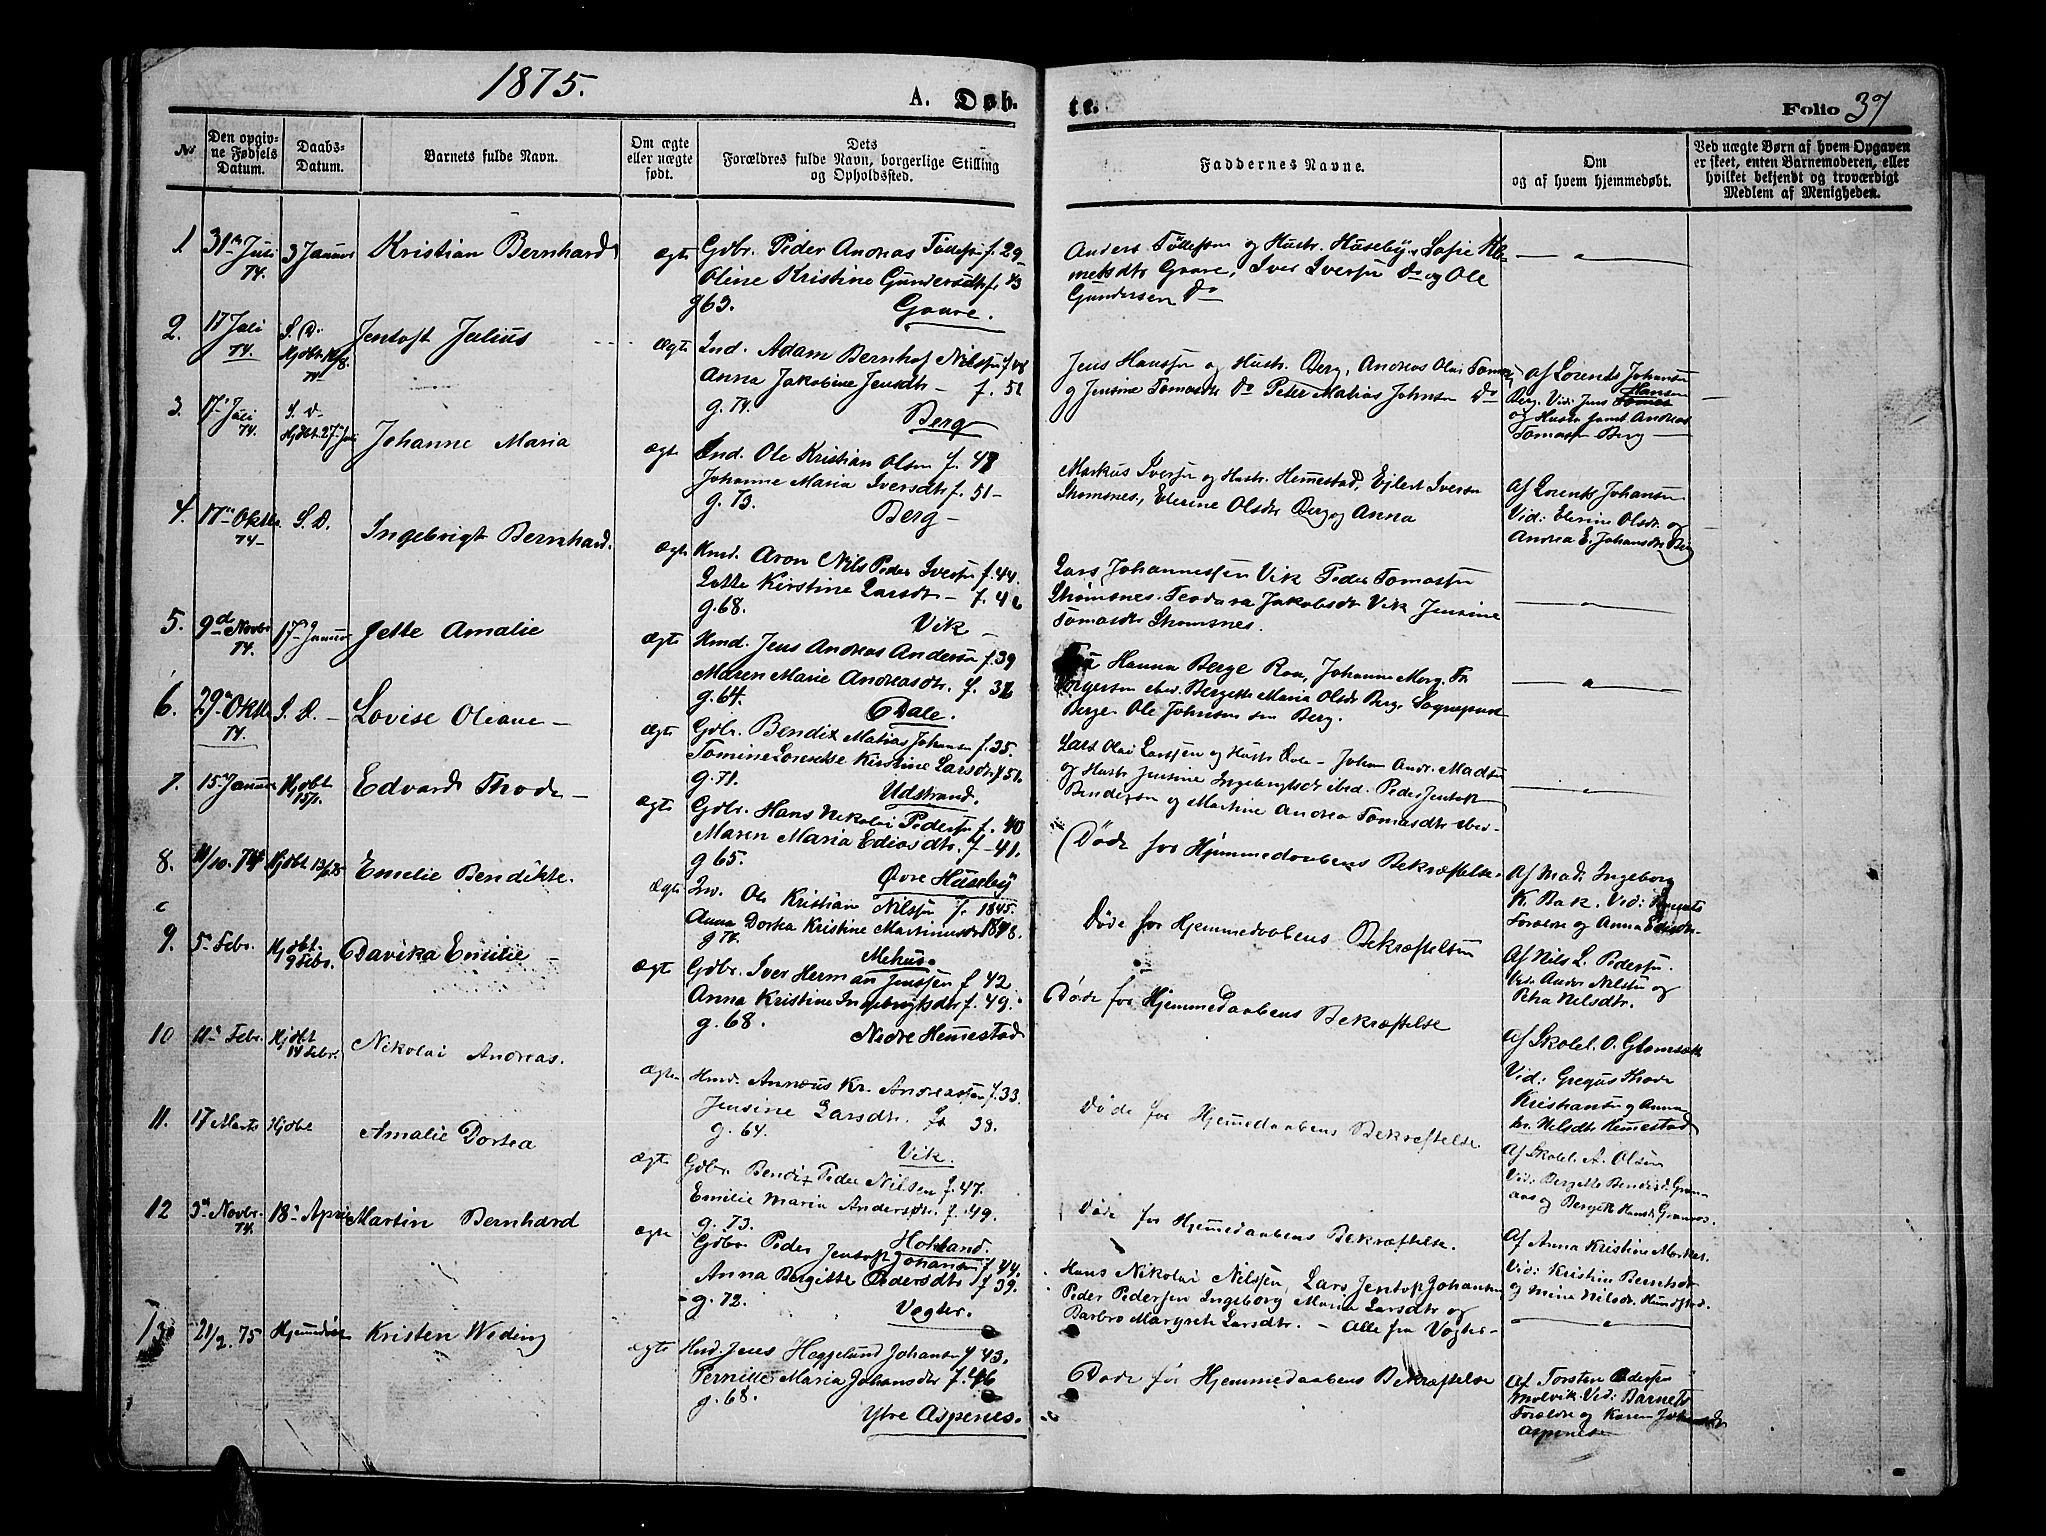 1875.
A. Døb.
te.
Folio 37
No
Den opgivne Fødsels Datum.
Daabs-Datum.
Barnets fulde Navn.
Om ægte eller uægte født.
Dets Forældres fulde Navn, borgerlige Stilling og Opholdssted.
Faddernes Navne.
Om og af hvem hjemmedøbt.
Ved uægte Børn af hvem Opgaven er skeet, enten Barnemoderen, eller hvilket bekjendt og troværdigt Medlem af Menigheden.
1. 31te Juli 74. 3 Januar Kristian Bernhard ægte
Gdbr. Peder Andreas Tøllefsen f. 29-
Oline Kristine Gundersdtr f. 43
g 63. Grave.
Anders Tøllefsen og Hustr. Huseby, Sofie
Grave, Iver Iversen Do og Ole
Gundersen Do
2. 17 Juli 74. S. D. Hjdbt. 74 Jentoft Julius ægte
Ind. Adam Bernhof Nilssen f. 48
Anna Jakobine Jensdtr - f. 51
g. 74. Berg
Jens Hanssen og Hustr. Berg, Andreas Olai
og Jensine Tomasdtr Do Peter Matias Johnsen Do
af Lorents Johansen
Berg. Vid: Jens Hansen
og Hustr samt Andreas
Tomassen Berg
3. 17 Juli 74. S. D. Hjdbt. 27 Juli Johanne Maria ægte
Ind. Ole Kristian Olsen f. 48
Johanne Maria Iversdtr f. 51-
g. 73. Berg-
Markus Iversen og Hustr. Hemestad, Ejlert Iversen
Elerine Olsdtr Berg og Anna
Af Lorents Johansen
Vid: Elerine Olsdtr. og
Andrea E. Johansdtr Berg
4. 17de Oktbr 74- S. D. Ingebrigt Bernhard. ægte
Kmd. Aron Nils Peder Iversen f. 44.
Lotte Kirstine Larsdtr - f. 46
g. 68. Vik -
Lars Johannessen Vik Peder Tomassen
Teodara Jakobsdtr Vik Jensine
Tomasdtr
5. 9d Novbr 74. 17 Januar Jette Amalie ægte
Kmd. Jens Andreas Andersen f. 39
Maren Marie Andreasdtr. f. 36
g. 64. Dale.
Hanna Berge Roa, Johanne Marg. Th.
Torgersen ibid. Bergette Maria Olsdtr Berg. Sogneprest
Berge Ole Johnsen sen Berg.
6. 29de Oktbr 74. S. D. - Lovise Oliane - ægte
Gdbr. Bendix Matias Johansen f. 35.
Tomine Lorentse Kirstine Larsdtr f 51.
g. 71. Udstrand.
Lars Olai Larssen og Hustr - Johan Andr. Madsen
og Hustr Jensine Ingebrigtsdtr ibid. Peder Jentoft
Bendixsen og Martine Andrea Tomasdtr ibid-
7. 15 Januar Hjdbt 15/1. Edvard Thode - ægte
Gdbr. Hans Nikolai Pedersen f. 40
Maren Maria Ediasdtr. f - 41.
g 65. Øvre Huseby
Døde før Hjemmedaabens Bekræftelse.
Af Mad. Ingeborg
K. Bak. Vid: Barnets
Forældre og Anna
8. 11/10. 74 Hjdbt Emelie Bendikte. ægte
Ole Kristian Nilssen f. 1845.
Anna Dortea Kristine Martinusdtr 1848.
g 74. Mehus.
Døde før Hjemmedaabens Bekræftelsen
Af Nils L. Pedersen.
Vid: Anders Nilssen og
Nilsdtr.
9. 5 Febr. Hjdbt. 9 Febr. Davika Emilie - ægte
Gdbr. Iver Herman Jenssen f 42
Anna Kristine Ingebrigtsdtr f. 49.
g. 68. Nedre Hemestad
Døde før Hjemmedaabens Bekræftelse
Af Skolel. O. Glomsæt
Vid: Gregus Thode
Kristiansen og Anna
Nilsdtr Hemestad
10 11te Febr. Hjdbt 14 Febr. Nikolai Andreas. ægte
Kmd. Annæus Kr. Andreassen f. 33.
Jensine Larsdtr. f. 38.
g. 64. Vik.
Døde før Hjemmedaabens Bekræftelse
Af Skolel. A. Olsen
Vid: Bergette Bendixd. Grannaas
og Bergith Hansd. Granaas.
11. 17 Marts Hjdbt Amalie Dortea ægte
Gdbr. Bendix Peder Nilsen f. 47.
Emilie Maria Andersdtr. f. 49.
g. 73. Hokland.
Døde før Hjemmedaabens Bekræftelse.
Af Anna Kristine
Vid: Kristine Berntsdtr
og Mina Nilsdtr.
12 3de Novbr. 74. 18de April Martin Bernhard ægte
Gdbr Peder Jentoft Johansen f 44.
Anna Bergitte Pedersdtr f 39.
g. 72. Vogter.
Hans Nikolai Nilssen, Lars Jentoft Johansen
Peder Pedersen Ingeborg Maria Larsdtr og
Barbro Margrete Larsdtr. - Alle fra Vogter-
13 21/2. 75 Hjemmedøbt Kristen Weding ægte
Kmd. Jens Heggelund Johansen f 43.
Pernille Maria Johansdtr f. 46
g. 68. Ytre Aspenes.
Døde før Hjemmedaabens Bekræftelse
Af Torsten Pedersen
Vid: Barnets
Forældre og Karen
Aspenes